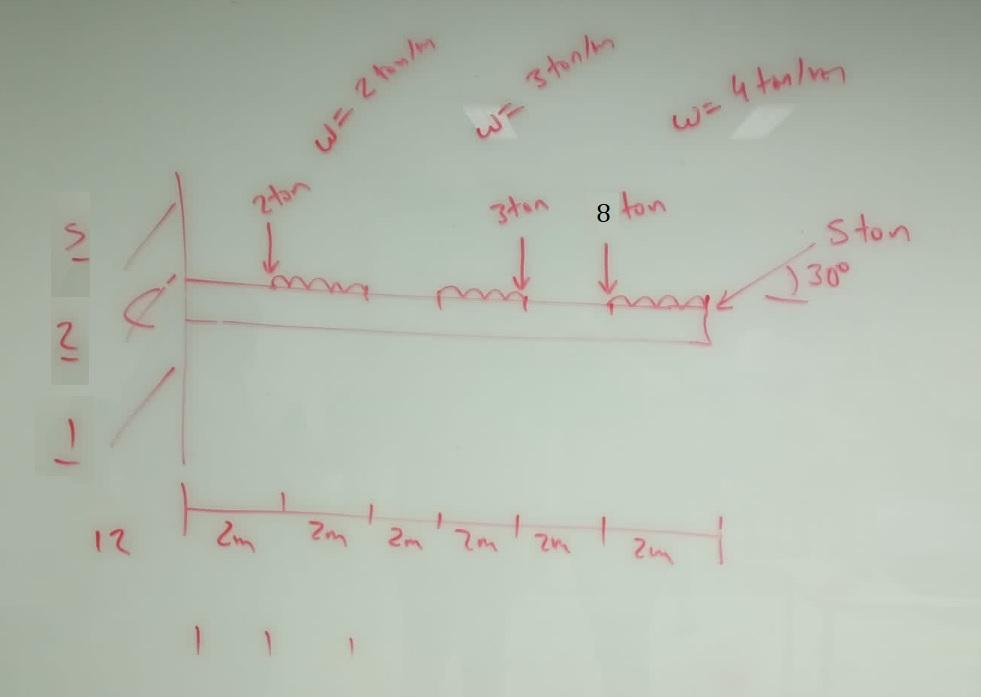 w= 2 ton/m
w= 3 ton/m
w= 4 ton/m
2 ton
3 ton
8 ton
5 ton
30°
5
2
1
12
2m
2m
2m
2m
2m
2m